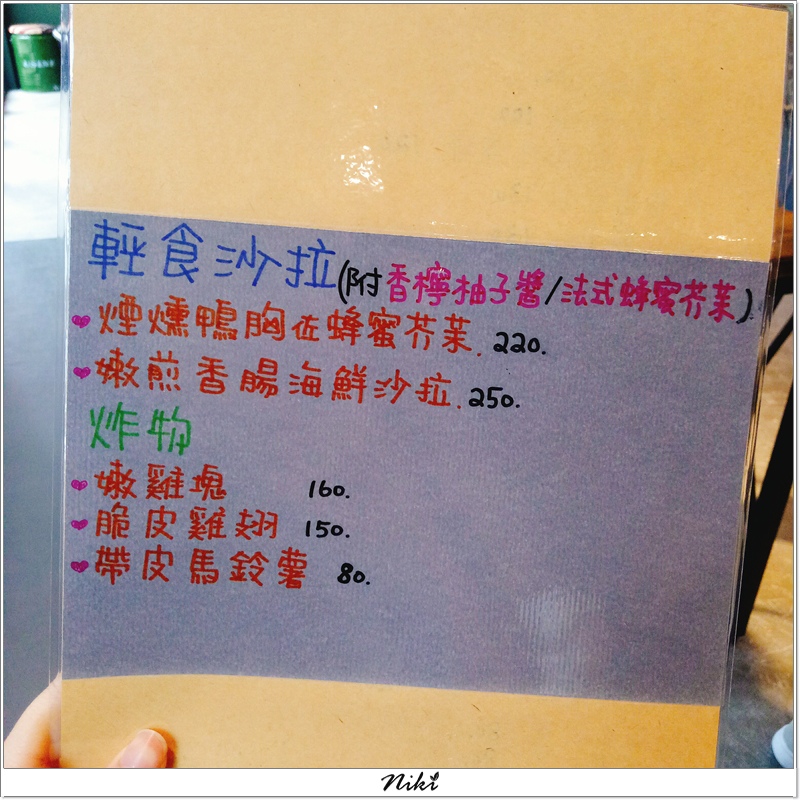 輕食沙拉(附香檸柚子醬/法式蜂蜜芥茉)
煙燻鴨胸佐蜂蜜芥茉. 220.
嫩煎香腸海鮮沙拉. 250.
炸物
嫩雞塊 160.
脆皮雞翅 150.
帶皮馬鈴薯 80.
Niki